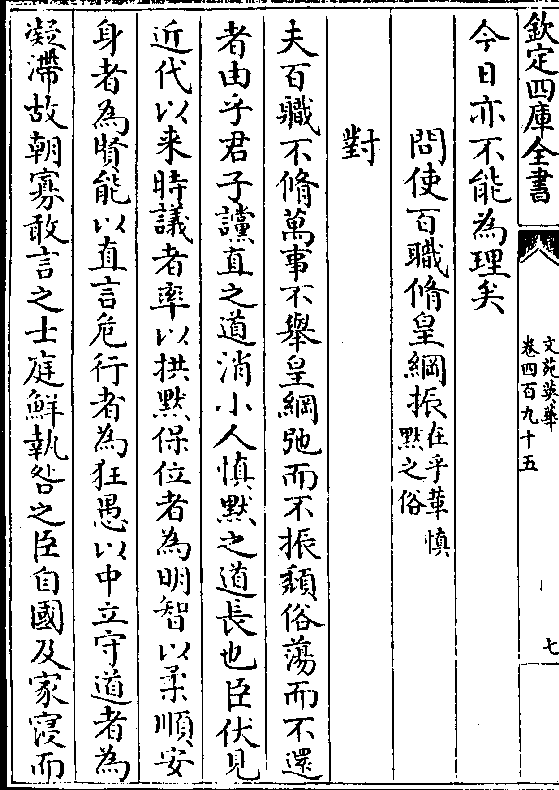 欽定四庫全書
文苑英華
卷四百九十五
七
今日亦不能為理矣
問使百職脩皇綱振在乎革慎
黙之俗
對
夫百職不脩萬事不舉皇綱弛而不振頽俗蕩而不還
者由乎君子讜直之道消小人慎黙之道長也臣伏見
近代以来時議者率以拱黙保位者為明智以柔順安
身者為賢能以直言危行者為狂愚以中立守道者為
凝滯故朝寡敢言之士庭鮮執咎之臣自國及家寖而